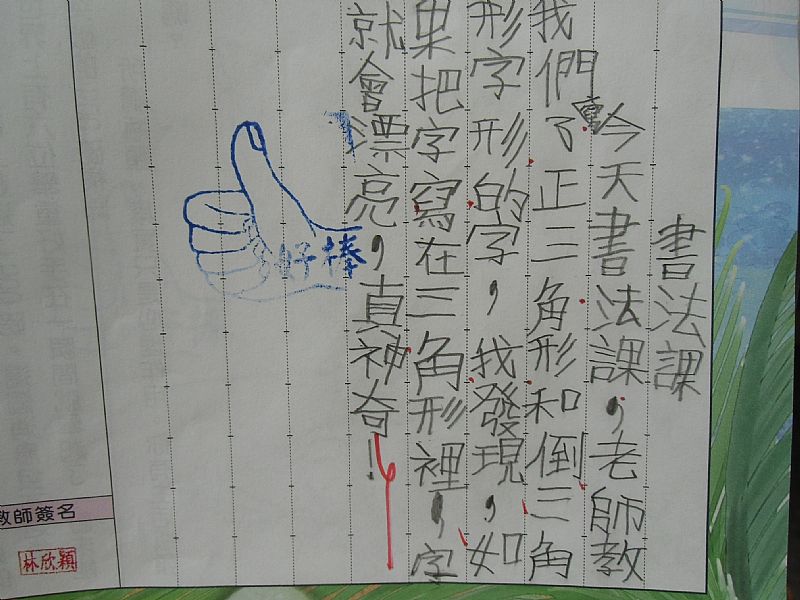 書法課
今天書法課，老師教
我們了正三角形和倒三角
形字形的字，我發現，如
果把字寫在三角形裡，字
就會漂亮，真神奇！
好棒
教師簽名
林欣穎